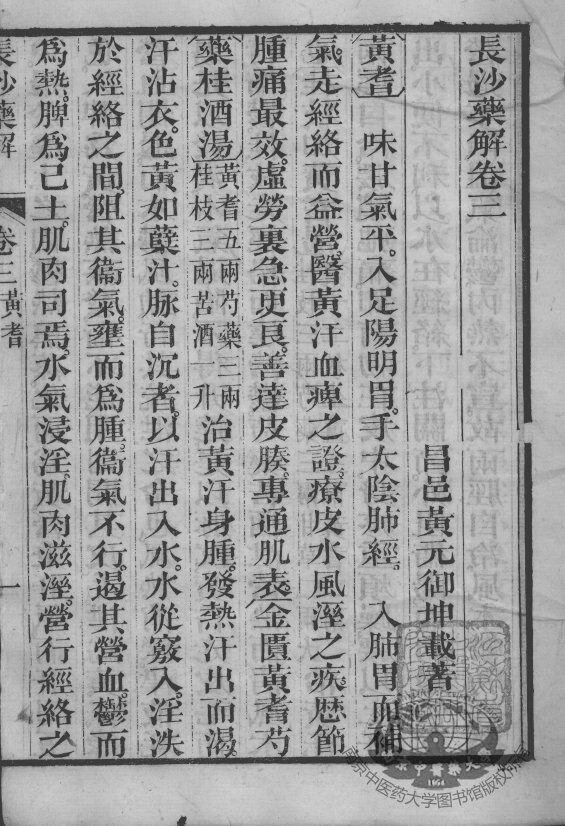 長沙藥解卷三
昌邑黃元御坤載著
黃耆　味甘氣平。入足陽明胃。手太陰肺經。　入肺胃而補
氣。走經絡而益營。醫黃汗血痺之證。療皮水風溼之疾。歷節
腫痛最效。虛勞裏急更良。善達皮腠。專通肌表。金匱黃耆芍
藥桂酒湯黃耆五兩芍藥三兩桂枝三兩苦酒一升治黃汗身腫。發熱汗出而渴。
汗沾衣。色黃如蘗汁。脈自沉者。以汗出入水。水從竅入。淫泆
於經絡之間。阻其衞氣。壅而爲腫。衞氣不行。遏其營血。鬱而
爲熱。脾爲己土。肌肉司焉。水氣浸淫。肌肉滋溼。營行經絡之
長沙藥解　卷三黃耆　一
南京中医药大学图书馆版权所有
1954